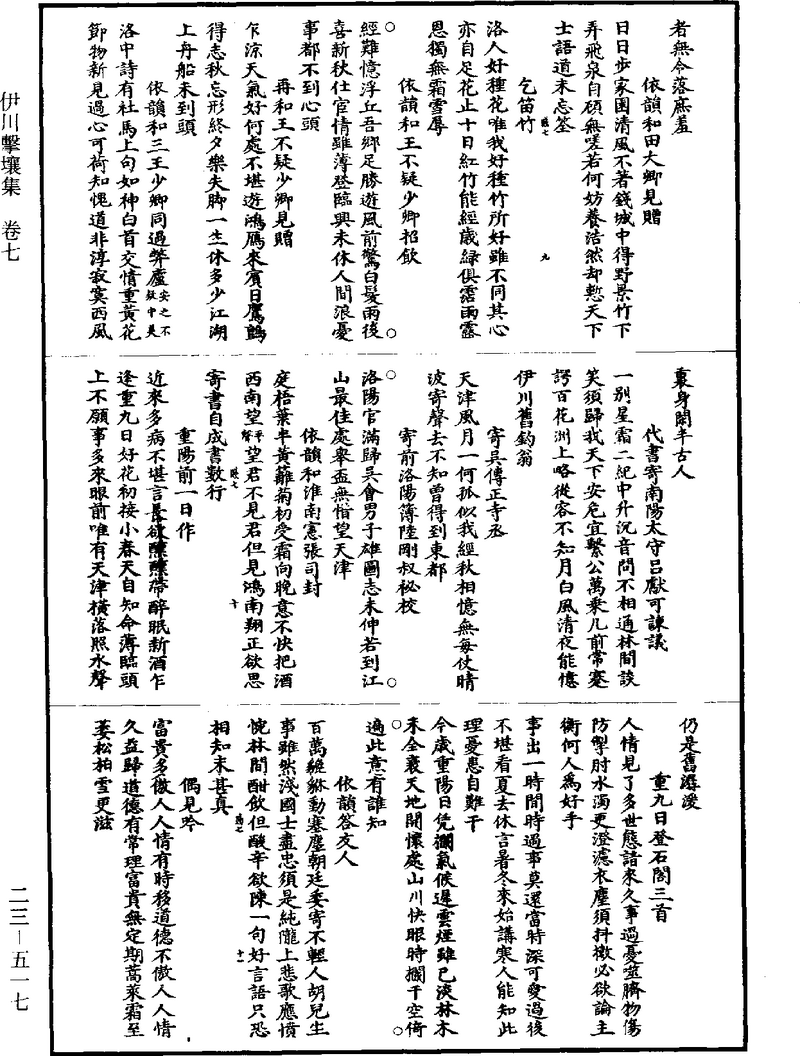 者無令落庶羞
依韻和田大卿見贈
日日步家園清風不著錢城中得野景竹下
弄飛泉自顧無嗟若何妨養浩然却慙天下
士語道未忘筌
乞笛竹
洛人好種花唯我好種竹所好雖不同其心
亦自足花止十日紅竹能經歲綠俱霑雨露
恩獨無霜雪辱
依韻和王不疑少卿招飲
經難憶浮丘吾鄉足勝遊風前驚白髮雨後
喜新秋仕宦情雖薄登臨興未休人間浪憂
事都不到心頭
再和王不疑少卿見贈
乍涼天氣好何處不堪遊鴻鴈來賓日鷹鸇
得志秋忘形終夕樂失脚一生休多少江湖
上舟船未到頭
依韻和三王少卿同過弊廬
洛中詩有社馬上句如神白首交情重黃花
節物新見過心可荷知愧道非淳寂寞西風
裏身閑半古人
代書寄南陽太守呂獻可諫議
一別星霜二紀中升沉音問不相通林間談
笑須歸我天下安危宜繫公萬乘几前常蹇
諤百花洲上略從容不知月白風清夜能憶
伊川舊釣翁
寄吳傳正寺丞
天津風月一何孤似我經秋相憶無每仗晴
波寄聲去不知曾得到東都
寄前洛陽簿陸剛叔祕校
洛陽官滿歸吳會男子雄圖志未伸若到江
山最佳處舉盃無惜望天津
依韻和淮南憲張司封
庭梧葉半黃籬菊初受霜向晚意不快把酒
西南望望君不見君但見鴻南翔正欲思
寄書自成書數行
重陽前一日作
近來多病不堪言長欲醺醺帶醉眠新酒乍
逢重九日好花初接小春天自知命薄臨頭
上不願事多來眼前唯有天津橫落照水聲
仍是舊潺湲
重九日登石閣三首
人情見了多世態諳來久事過憂噬臍物傷
防掣肘水濁更澄濾衣塵須抖擻必欲論主
衡何人爲好手
事出一時間時過事莫還當時深可愛過後
不堪看夏去休言暑冬來始講寒人能知此
理憂患自難干
今歲重陽日凭欄氣候遲雲煙雖已淡林木
未全衰天地開懷處山川快眼時欄干空倚
遍此意有誰知
依韻答友人
百萬貔貅動塞塵朝廷委寄不輕人胡兒生
事雖然淺國士盡忠須是純隴上悲歌應憤
惋林間酣飲但酸辛欲陳一句好言語只恐
相知未甚真
偶見吟
富貴多傲人人情有時移道德不傲人人情
久益歸道德有常理富貴無定期蒿萊霜至
萎松柏雪更滋
伊川擊壤集 卷七
二三—五一七